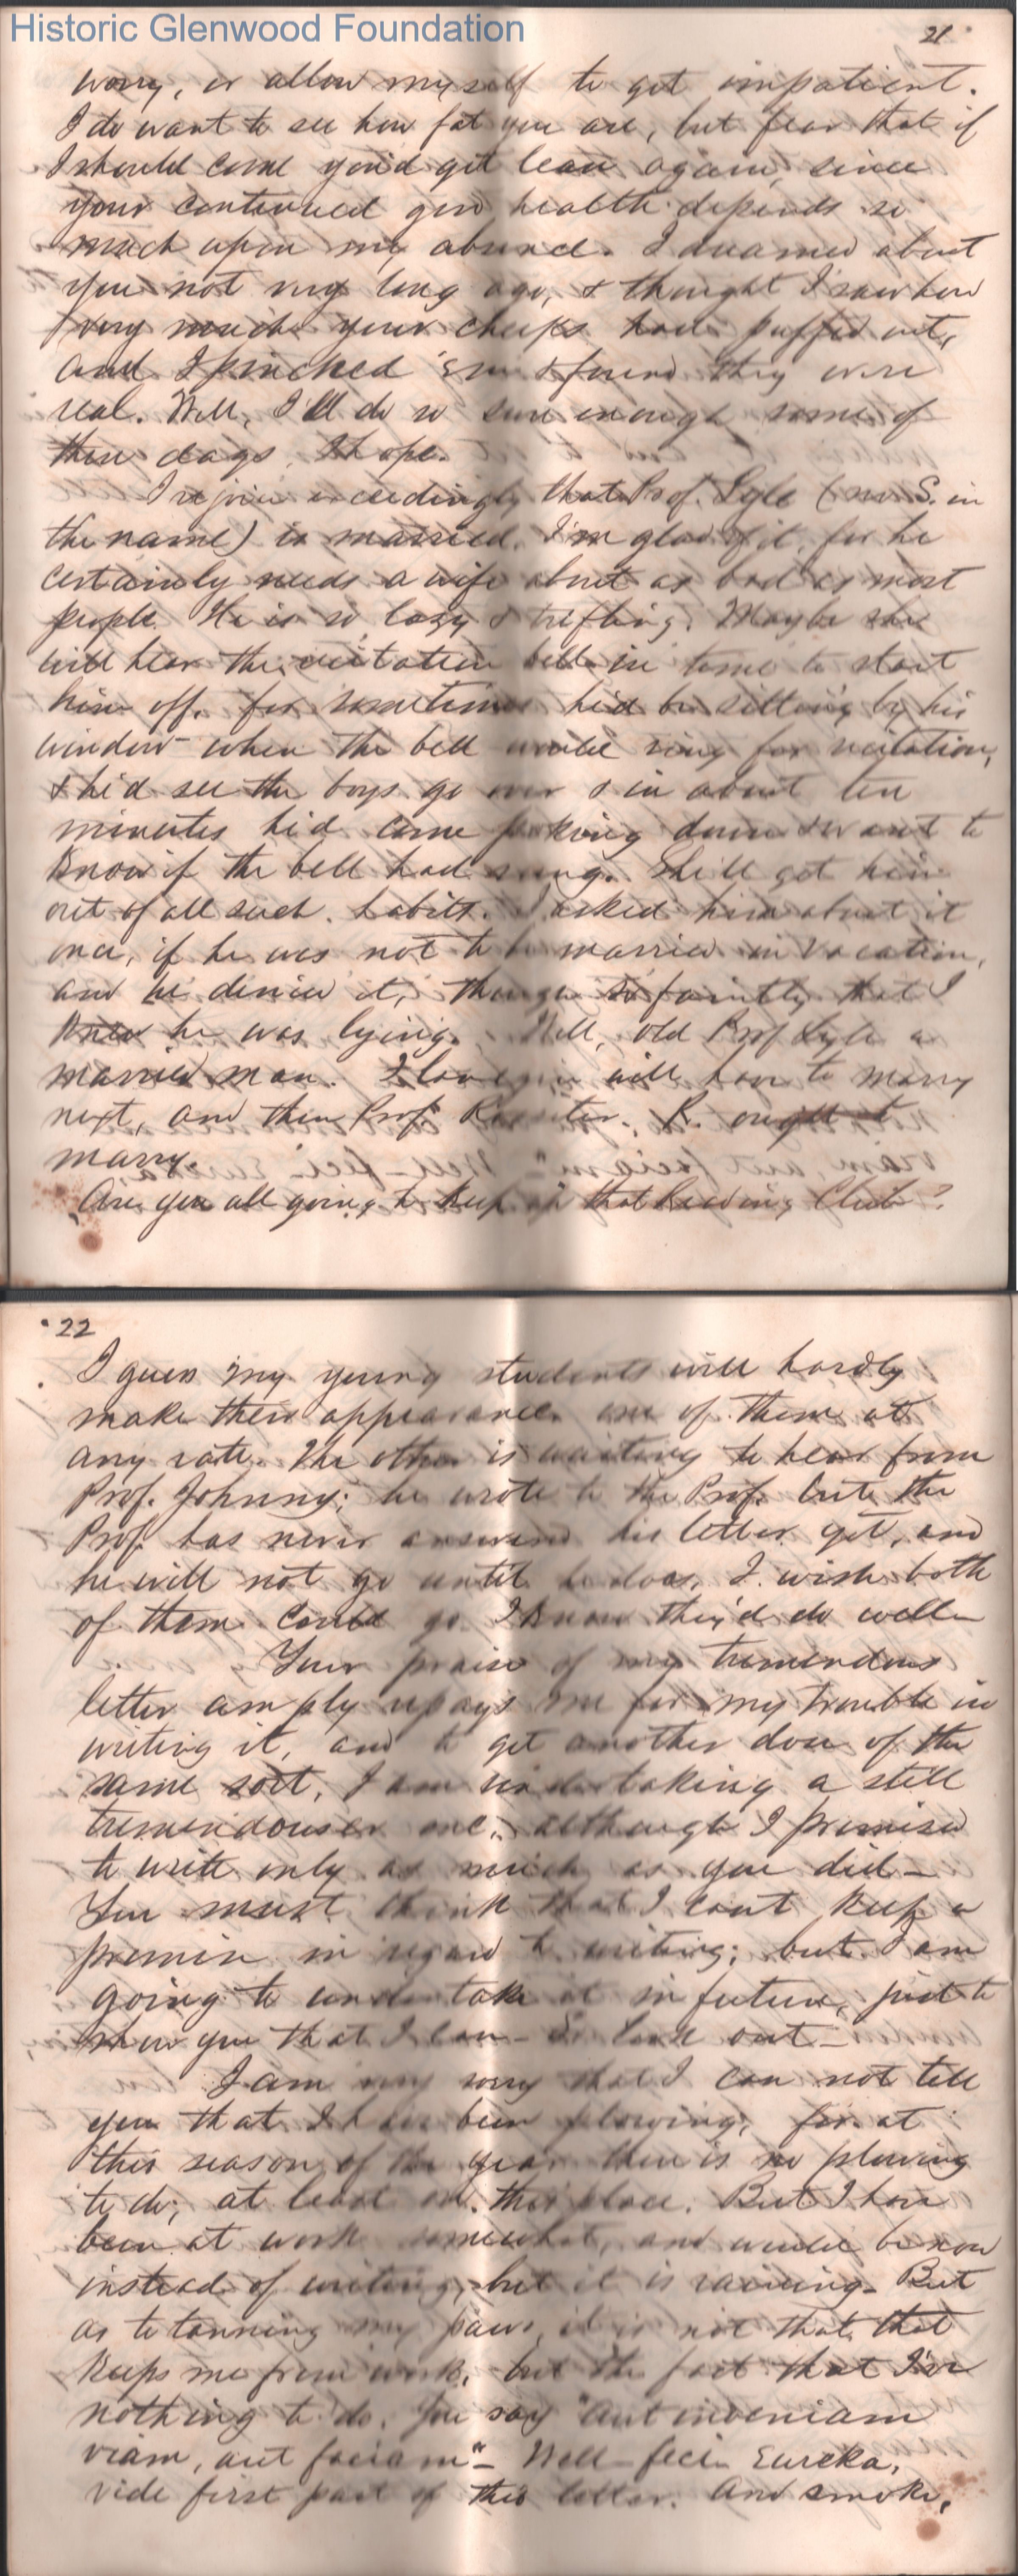 Historic Glenwood Foundation
21
worry, or allow myself to get impatient.
I do want to see how fat you are, but fear that if
I should come you'd get lean again, since
your continued good health depends so
much upon my absence. I dreamed about
you not very long ago, & thought I saw how
very much your cheeks had puffed out,
and I pinched 'em & found they were
real. Well, I'll do so sure enough some of
these days, I hope.
I rejoice exceedingly that Prof. Lyle (no S. in
the name) is married. I'm glad of it, for he
certainly needs a wife about as bad as most
people. He is so lazy & trifling. Maybe she
will hear the recitation bell in time to start
him off. for sometimes he'd be sitting by his
window when the bell would ring for recitation,
& he'd see the boys go over & in about ten
minutes he'd come poking down & want to
know if the bell had rung. She'll get him
out of all such habits. I asked him about it
once, if he was not to be married in vacation,
and he denied it, though so faintly that I
knew he was lying. Well, old Prof Lyle a
married man. will have to marry
next, and then Prof. R. ought to
marry.
Are you all going to keep up that Reading Club?
22
I guess my young students will hardly
make their appearance, one of them at
any rate. The other is waiting to hear from
Prof. Johnny; he wrote to the Prof. but the
Prof. has never answered his letter yet, and
he will not go until he does. I wish both
of them could go. I know they'd do well
Your praise of my tremendous
letter amply repays me for my trouble in
writing it, and to get another dose of the
same sort, I am undertaking a still
tremendouser one, although I promised
to write only as much as you did -
You must think that I can't keep a
promise in regard to writing; but I am
going to undertake it in future, just to
show you that I can - So look out -
I am very sorry that I can not tell
you that I have been plowing, for at
this season of the year there is no plowing
to do; at least on this place. But I have
been at work somewhat, and would be now
instead of writing, but it is raining - But
as to tanning my paws, it is not that that
keeps me from work, but the fact that I've
nothing to do. You say "Aut inveniam
viam, aut faciam" - Well - feci. Eureka,
vide first part of this letter. And smoke,